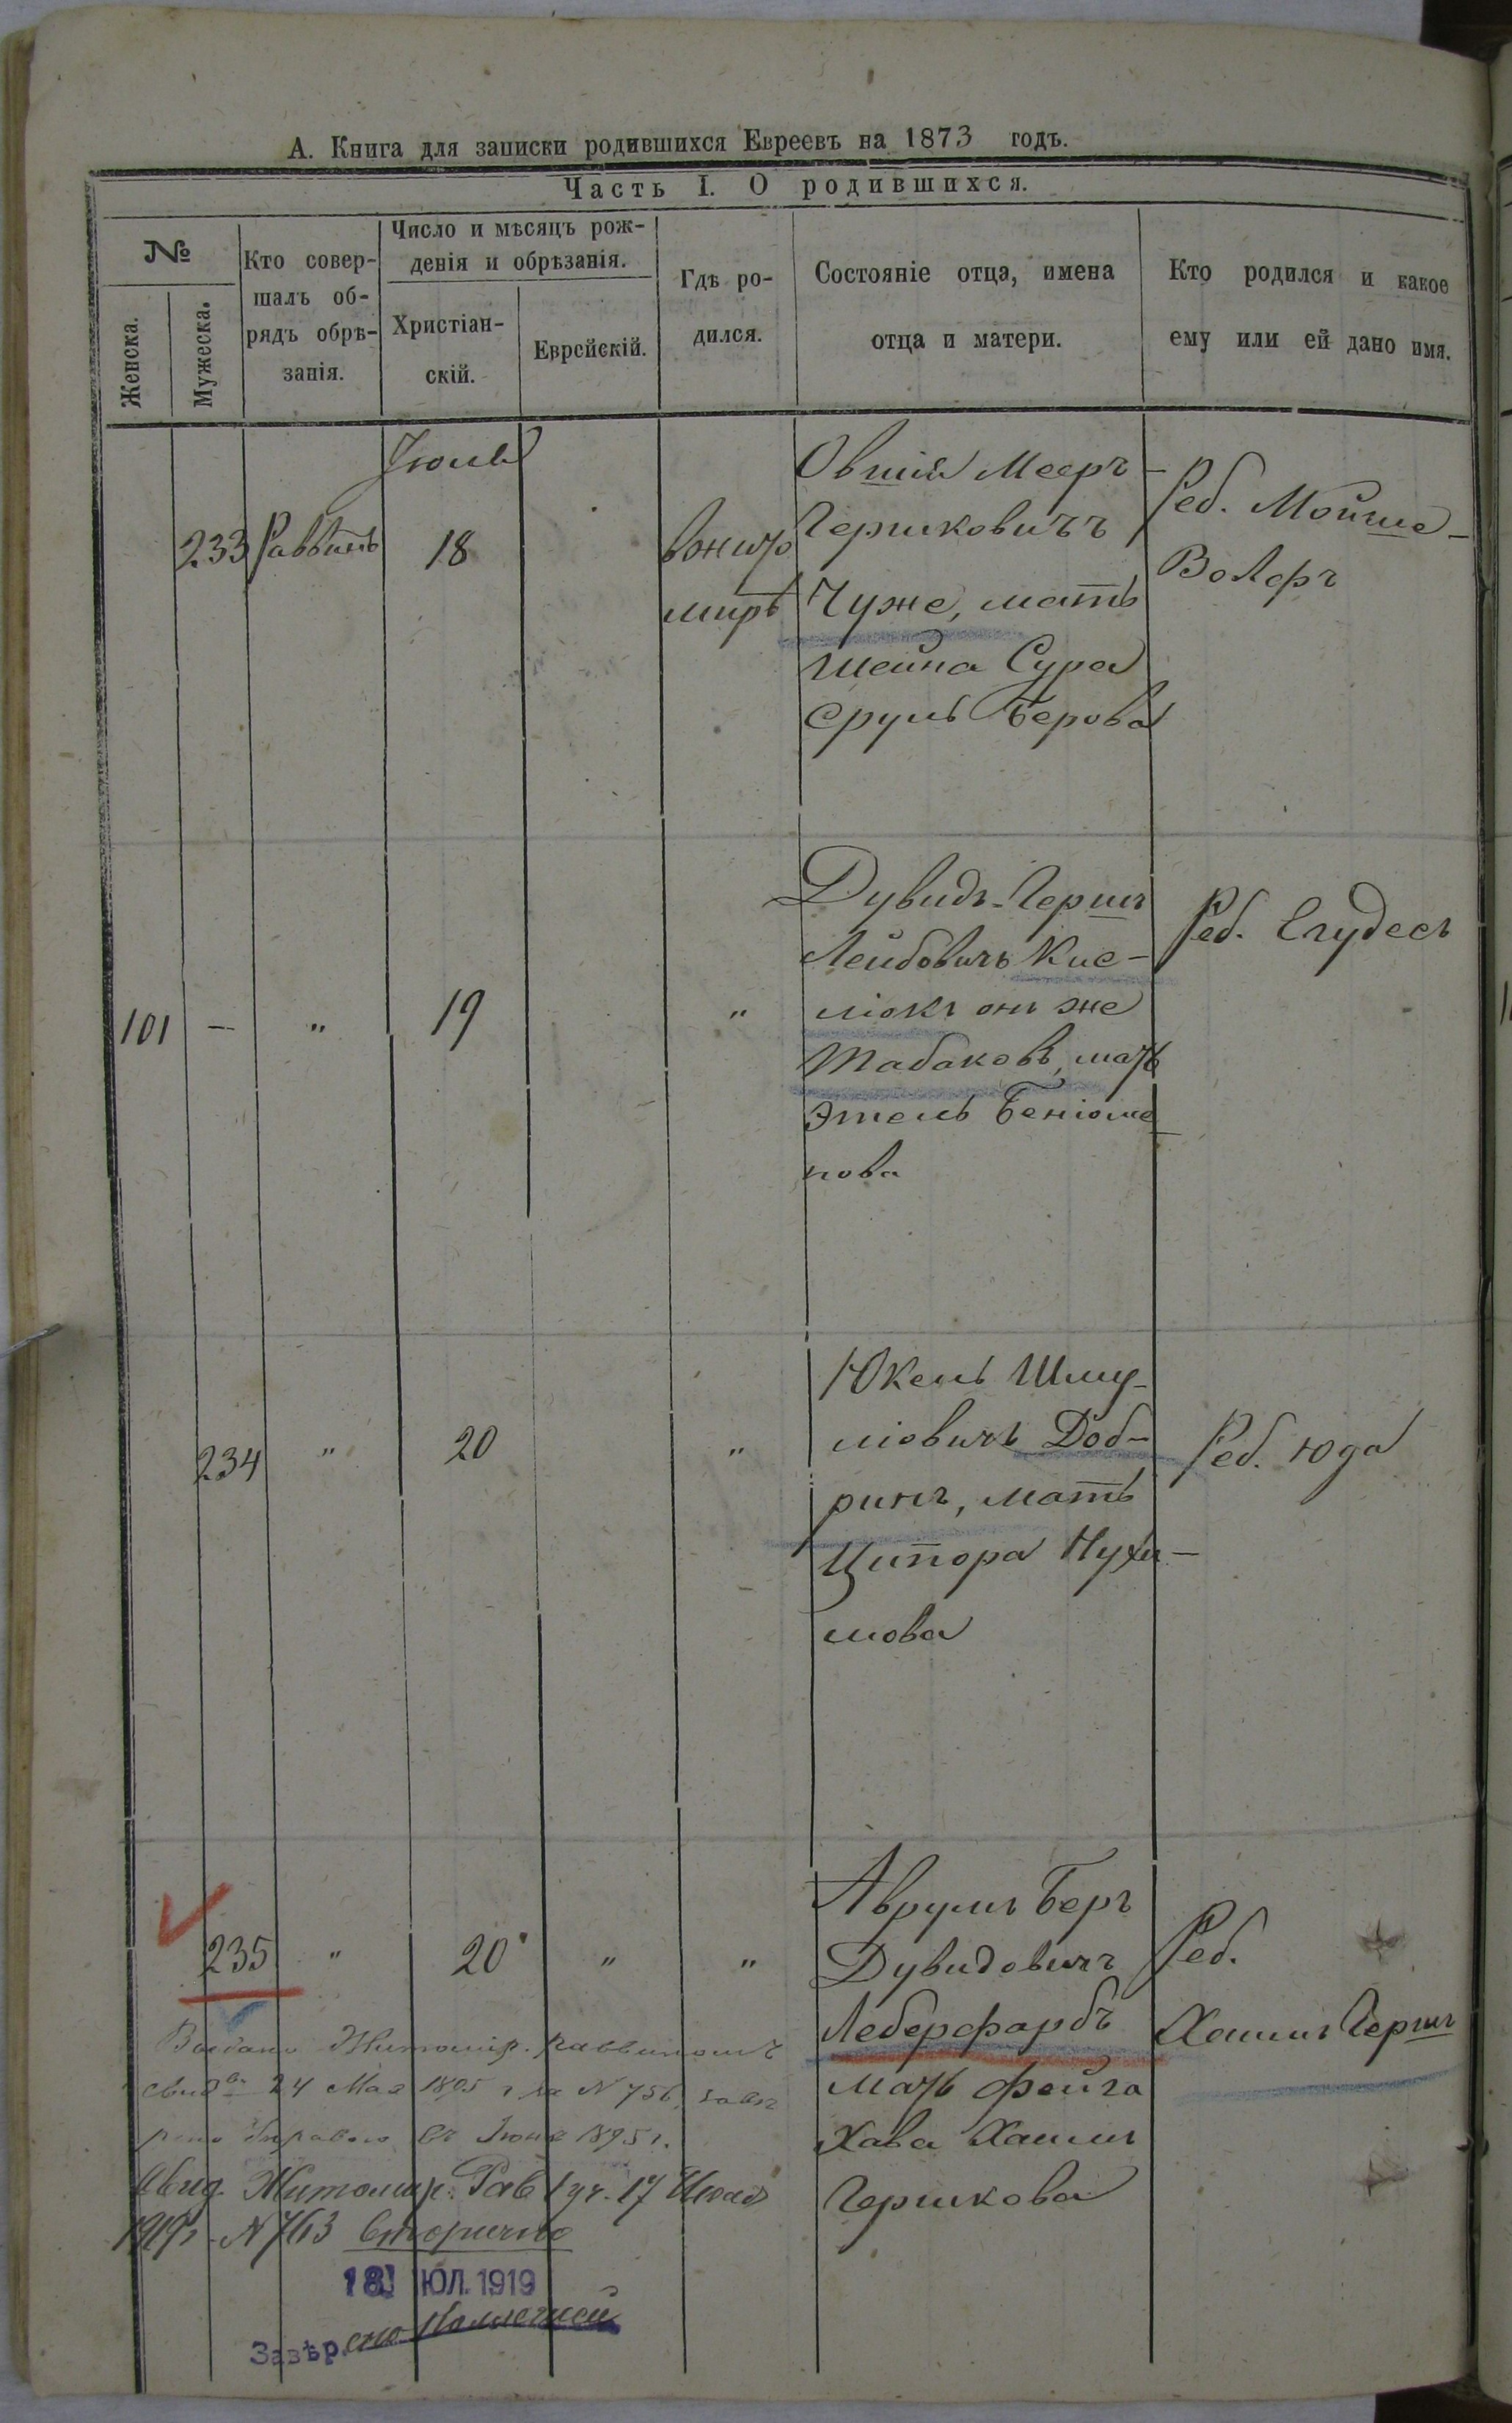 А. Книга для записки родившихся Евреевъ на 1873 годъ.
Часть I. О родившихся.
№
Женска.
Мужеска.
Кто совер-
шалъ об-
рядъ обрѣ-
занія.
Число и мѣсяцъ рож-
денія и обрѣзанія.
Христіан-
скій.
Еврейскій.
Гдѣ ро-
дился.
Состояніе отца, имена
отца и матери.
Кто родился и какое
ему или ей дано имя.
Іюль
233 Раввинъ 18
вжито
мирѣ
Овшій Мееръ-
Гершковичъ
Чуже, мать
Шейна Сура
Сруль Берова
Реб. Мойше-
Волфъ
101 — " 19 "
Дувидъ-Гершъ
Лейбовичъ Кис-
люкъ онъ же
Табаковъ, мать
Этель Беніоме-
нова
Реб. Егудесъ
234 " 20 "
Юкель Шму-
ліовичъ Доб-
ринъ, мать
Ципора Нухи-
мова
Реб. Юда
235 " 20 " "
Аврумъ Беръ
Дувидовичъ
Леберфарбъ
мать Фейга
Хава Хаимъ
Гершкова
Реб.
Хаимъ Гершъ
Выдано Житомір. раввиномъ
свидв. 24 Мая 1895 г за N 756, завѣ
рено Управою Іюня 1895 г.
Свид. Житомир. Рав 1 уч. 17 Июля
1919г. N 763 Вторично
18 ІЮЛ. 1919
Завѣрено Коллегией